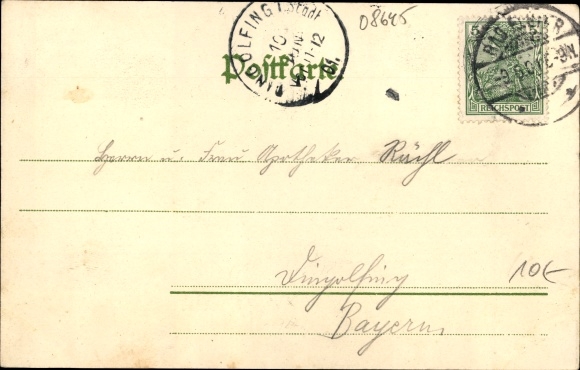 08645
DINGOLFING Stadt
10
11-12
5
REICHSPOST
Postkarte
Herrn u. Frau Apotheker Rüchl
Dingolfing
10€
Bayern